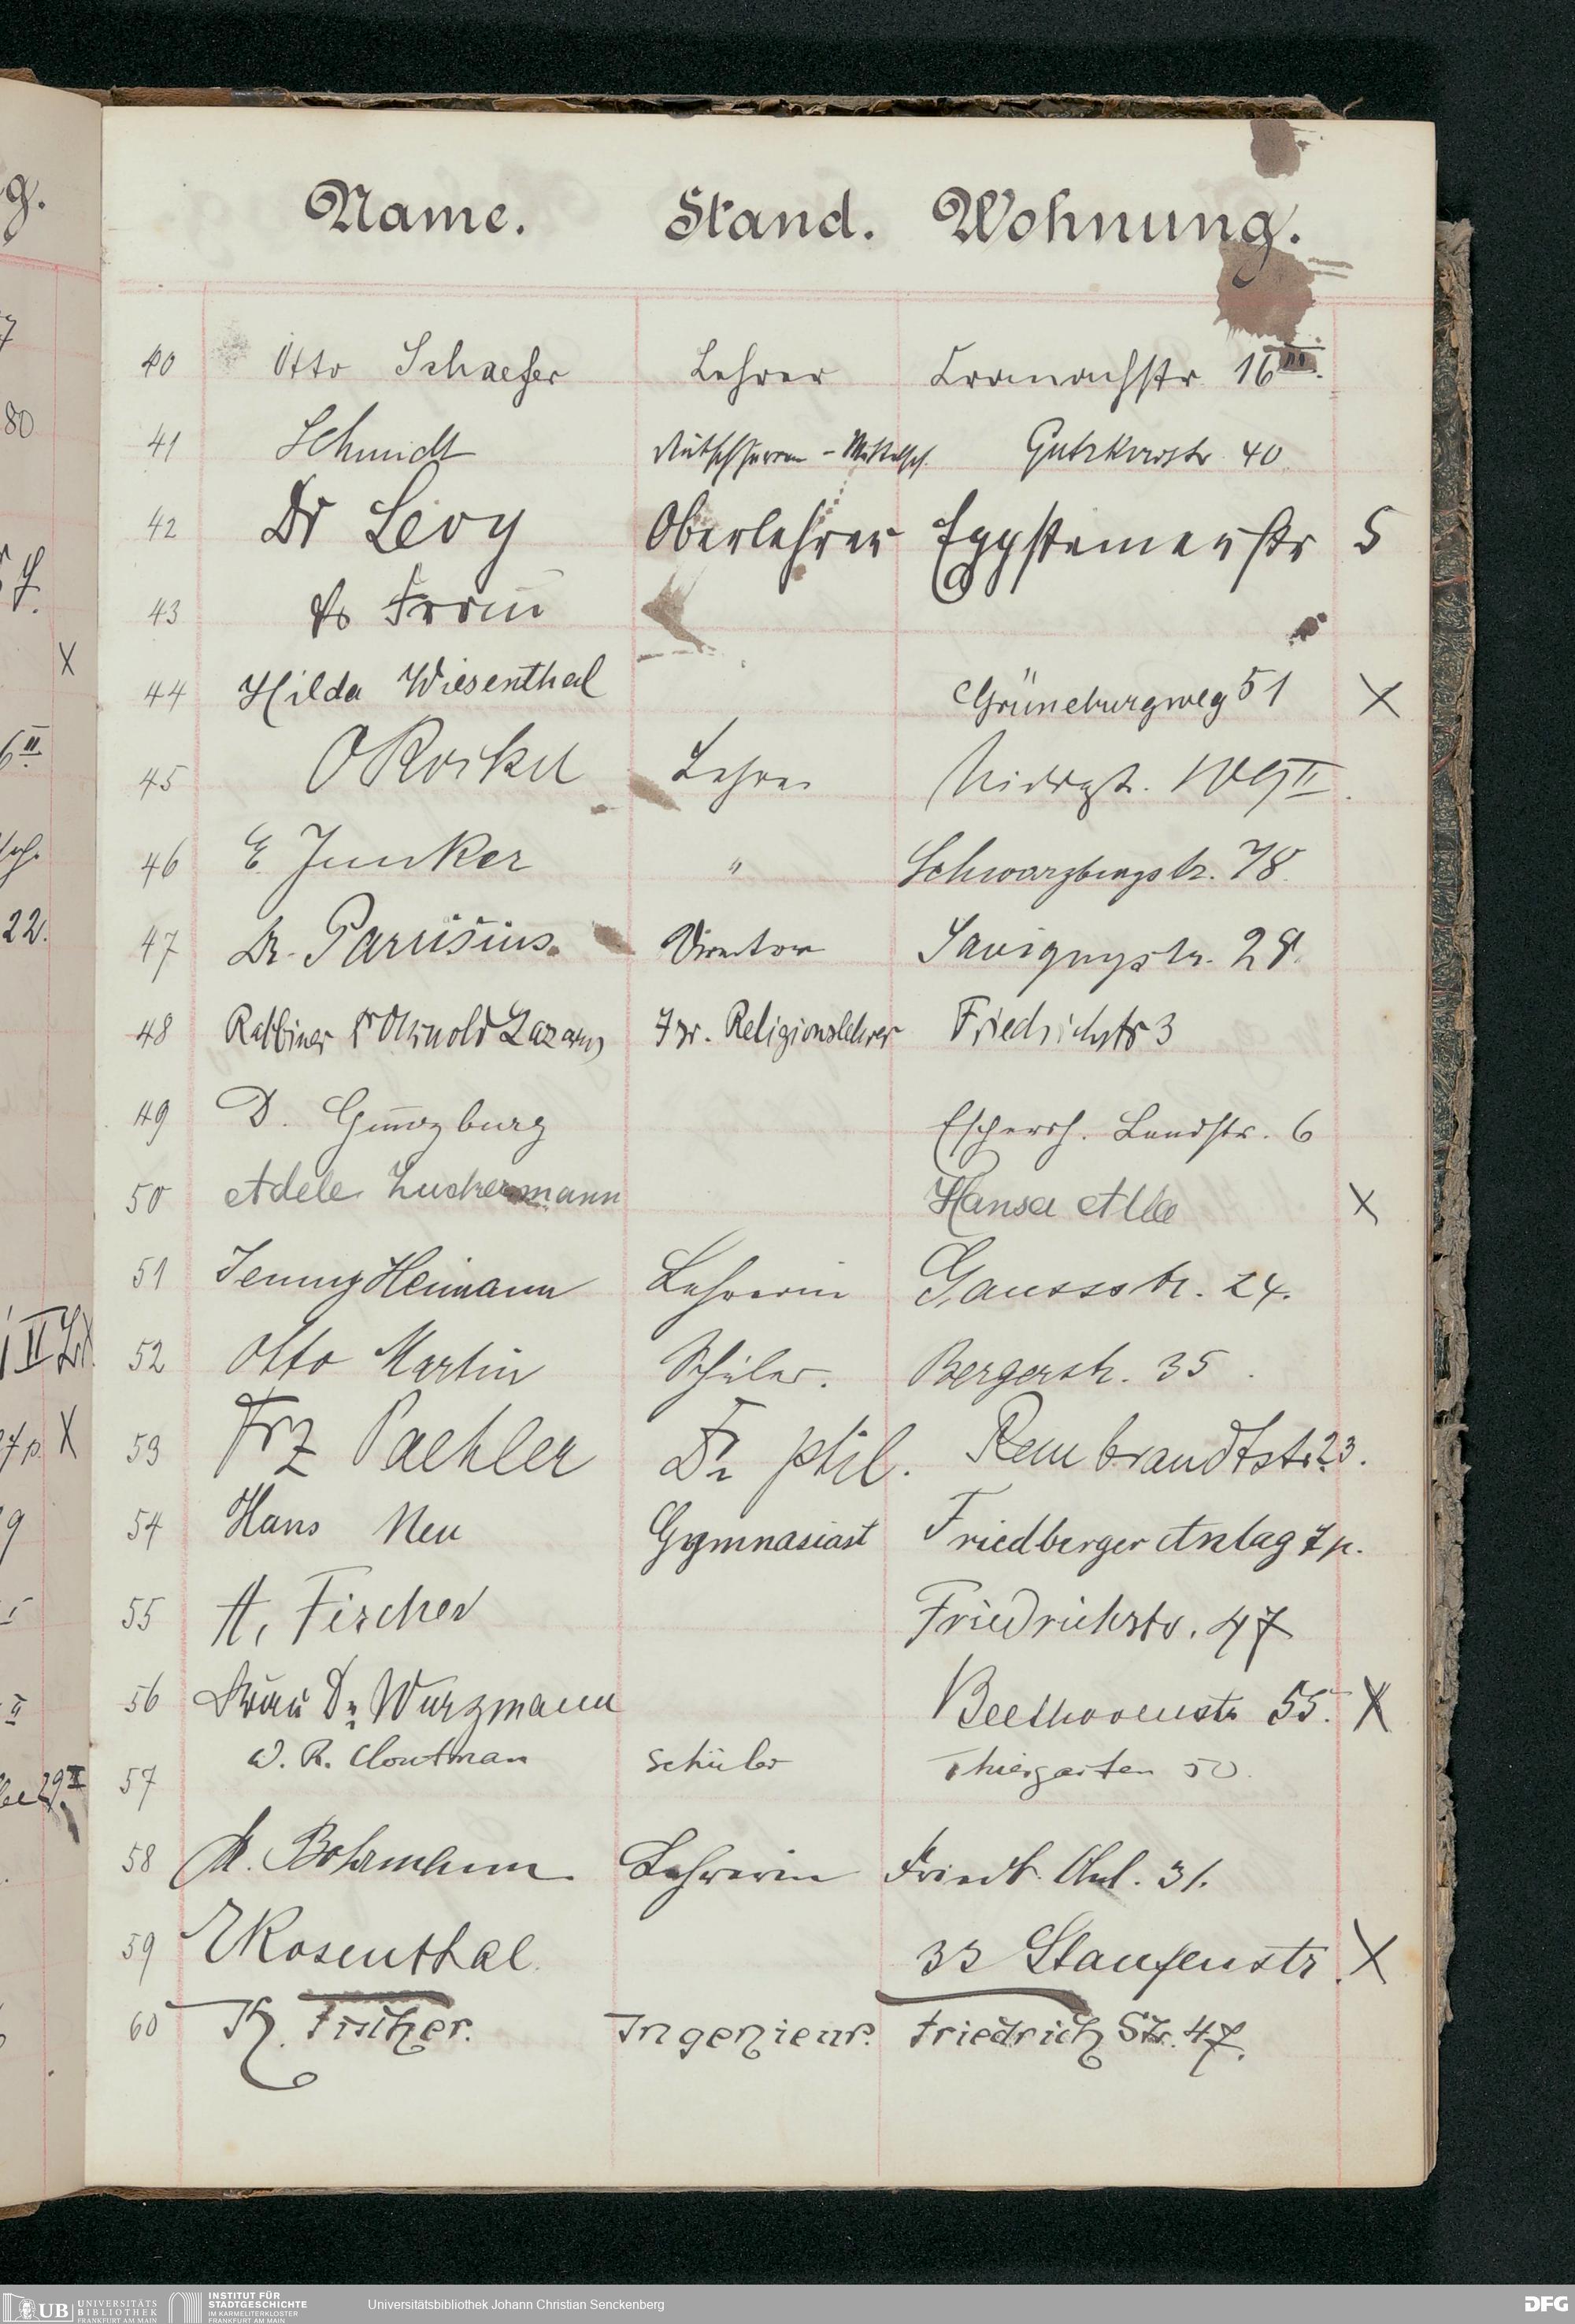 Name. Stand. Wohnung.
40 Otto Schaefer Lehrer Cronachstr 16 III.
41 Schmidt Mittelsch. Gutzkowstr 40
42 Dr Levy Oberlehrer Eppsteinerstr 5
43 Dr
44 Hilda Wiesenthal Grüneburgweg 51 X
45 Lehrer
46 E. Junker " Schwarzburgstr. 78.
47 Dr. Parisius. Director Savignystr. 28.
48 Rabbiner Dr Arnold Lazarus Isr. Religionslehrer Friedrichstr 3
49 D. Günzburg Eschersh. Landstr. 6
50 Adele Zuckermann Hansa Allee X
51 Jenny Heimann Lehrerin Gaussstr. 24.
52 Otto Martin Schüler. Bergerstr. 35.
53 Frz Paehler Dr phil. Rembrandtstr 23.
54 Hans Neu Gymnasiast Friedberger Anlag 7 p.
55 A. Fischer Friedrichstr. 47
56 Frau Dr Wurzmann Beethovenstr 55. X
57 W. R. Cloutman Schüler Thiergarten 50.
58 Lehrerin Friedb. Anl. 31.
59 Rosenthal 33 Staufenstr. X
60 Fischer. Ingenieur. Friedrich Str. 47.
22.
X
X
80
UB UNIVERSITÄTS
BIBLIOTHEK
FRANKFURT AM MAIN
INSTITUT FÜR
STADTGESCHICHTE
IM KARMELITERKLOSTER
FRANKFURT AM MAIN
Universitätsbibliothek Johann Christian Senckenberg
DFG